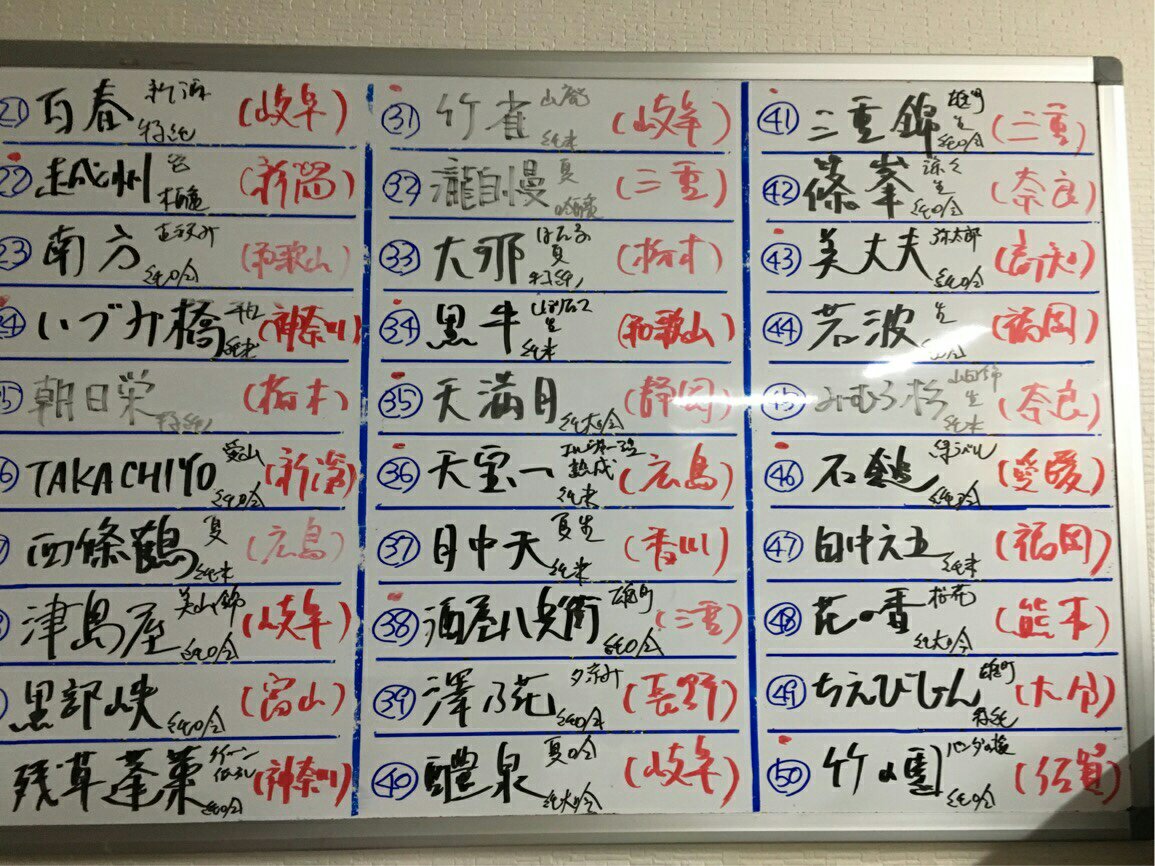 ㉑ 百春 新酒 特純 (岐阜)
㉒ 越州 (新潟)
23 南方 直汲み 純吟 (和歌山)
24 いづみ橋 純米 (神奈川)
25 朝日栄 特純 (栃木)
6 TAKACHIYO 愛山 純吟 (新潟)
7 四條鶴 夏 純米 (広島)
津島屋 美山錦 純吟 (岐阜)
黒部峡 純吟 (富山)
残草蓬莱 純吟 (神奈川)
㉛ 竹雀 山廃 純米 (岐阜)
㉜ 瀧自慢 夏 吟醸 (三重)
㉝ 大那 ほたる 夏 特純 (栃木)
㉞ 黒牛 生 純米 (和歌山)
㉟ 天満月 純大吟 (静岡)
㊱ 天宝一 熟成 純米 (広島)
㊲ 日中天 夏生 純米 (香川)
㊳ 酒屋八兵衛 雄町 純吟 (三重)
㊴ 澤乃花 夕涼み 純吟 (長野)
㊵ 醴泉 夏吟 純大吟 (岐阜)
㊶ 三重錦 雄町 生 純吟 (三重)
㊷ 篠峯 涼々 生 純吟 (奈良)
㊸ 美丈夫 弥太郎 純吟 (高知)
㊹ 若波 生 純吟 (福岡)
㊺ みむろ杉 山田錦 生 純米 (奈良)
㊻ 石鎚 緑ラベル 純吟 (愛媛)
㊼ 田中六五 純米 (福岡)
㊽ 花の香 桜花 純大吟 (熊本)
㊾ ちえびじん 雄町 特純 (大分)
㊿ 竹の園 パンダの 純吟 (佐賀)